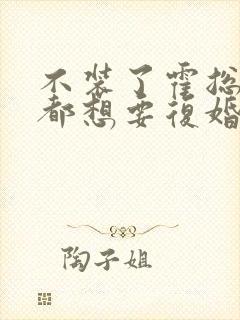 不装了霍总
都想要復婚
陶子姐